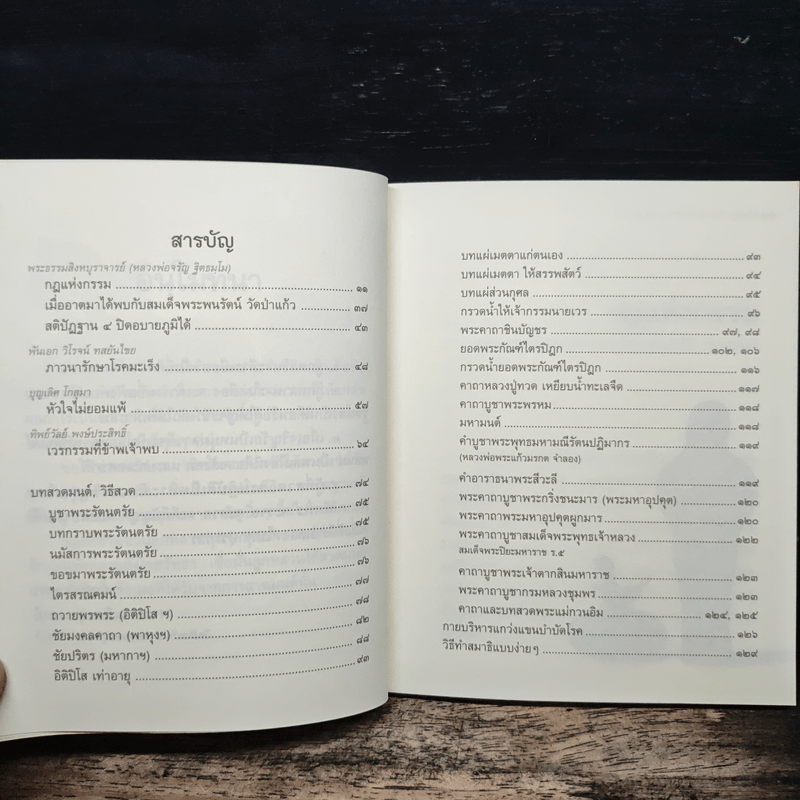 สารบัญ
พระธรรมสิงหบุราจารย์ (หลวงพ่อจรัญ ฐิตธมฺโม)
กฎแห่งกรรม ๑๑
เมื่ออาตมาได้พบกับสมเด็จพระพนรัตน์ วัดป่าแก้ว ๓๗
สติปัฏฐาน ๔ ปิดอบายภูมิได้ ๔๓
พันเอก วิโรจน์ ทสยันไชย
ภาวนารักษาโรคมะเร็ง ๔๘
บุญเลิศ โกสุมา
หัวใจไม่ยอมแพ้ ๕๗
ทิพย์วัลย์ พงษ์ประสิทธิ์
เวรกรรมที่ข้าพเจ้าพบ ๖๔
บทสวดมนต์, วิธีสวด ๗๔
บูชาพระรัตนตรัย ๗๕
บทกราบพระรัตนตรัย ๗๕
นมัสการพระรัตนตรัย ๗๖
ขอขมาพระรัตนตรัย ๗๖
ไตรสรณคมน์ ๗๗
ถวายพรพระ (อิติปิโส ฯ) ๗๘
ชัยมงคลคาถา (พาหุงฯ) ๘๒
ชัยปริตร (มหากาฯ) ๘๘
อิติปิโส เท่าอายุ ๙๓
บทแผ่เมตตาแก่ตนเอง ๙๓
บทแผ่เมตตา ให้สรรพสัตว์ ๙๔
บทแผ่ส่วนกุศล ๙๕
กรวดน้ำให้เจ้ากรรมนายเวร ๙๖
พระคาถาชินบัญชร ๙๗, ๙๘
ยอดพระกัณฑ์ไตรปิฎก ๑๐๒, ๑๐๖
กรวดน้ำยอดพระกัณฑ์ไตรปิฎก ๑๑๖
คาถาหลวงปู่ทวด เหยียบน้ำทะเลจืด ๑๑๗
คาถาบูชาพระพรหม ๑๑๘
มหามนต์ ๑๑๘
คำบูชาพระพุทธมหามณีรัตนปฏิมากร ๑๑๙
(หลวงพ่อพระแก้วมรกต จำลอง)
คำอาราธนาพระสีวะลี ๑๑๙
พระคาถาบูชาพระกริ่งชนะมาร (พระมหาอุปคุต) ๑๒๐
พระคาถาพระมหาอุปคุตผูกมาร ๑๒๐
พระคาถาบูชาสมเด็จพระพุทธเจ้าหลวง ๑๒๒
สมเด็จพระปิยะมหาราช ร.๕
คาถาบูชาพระเจ้าตากสินมหาราช ๑๒๓
พระคาถาบูชากรมหลวงชุมพร ๑๒๓
คาถาและบทสวดพระแม่กวนอิม ๑๒๔, ๑๒๕
กายบริหารแกว่งแขนบำบัดโรค ๑๒๖
วิธีทำสมาธิแบบง่ายๆ ๑๒๙